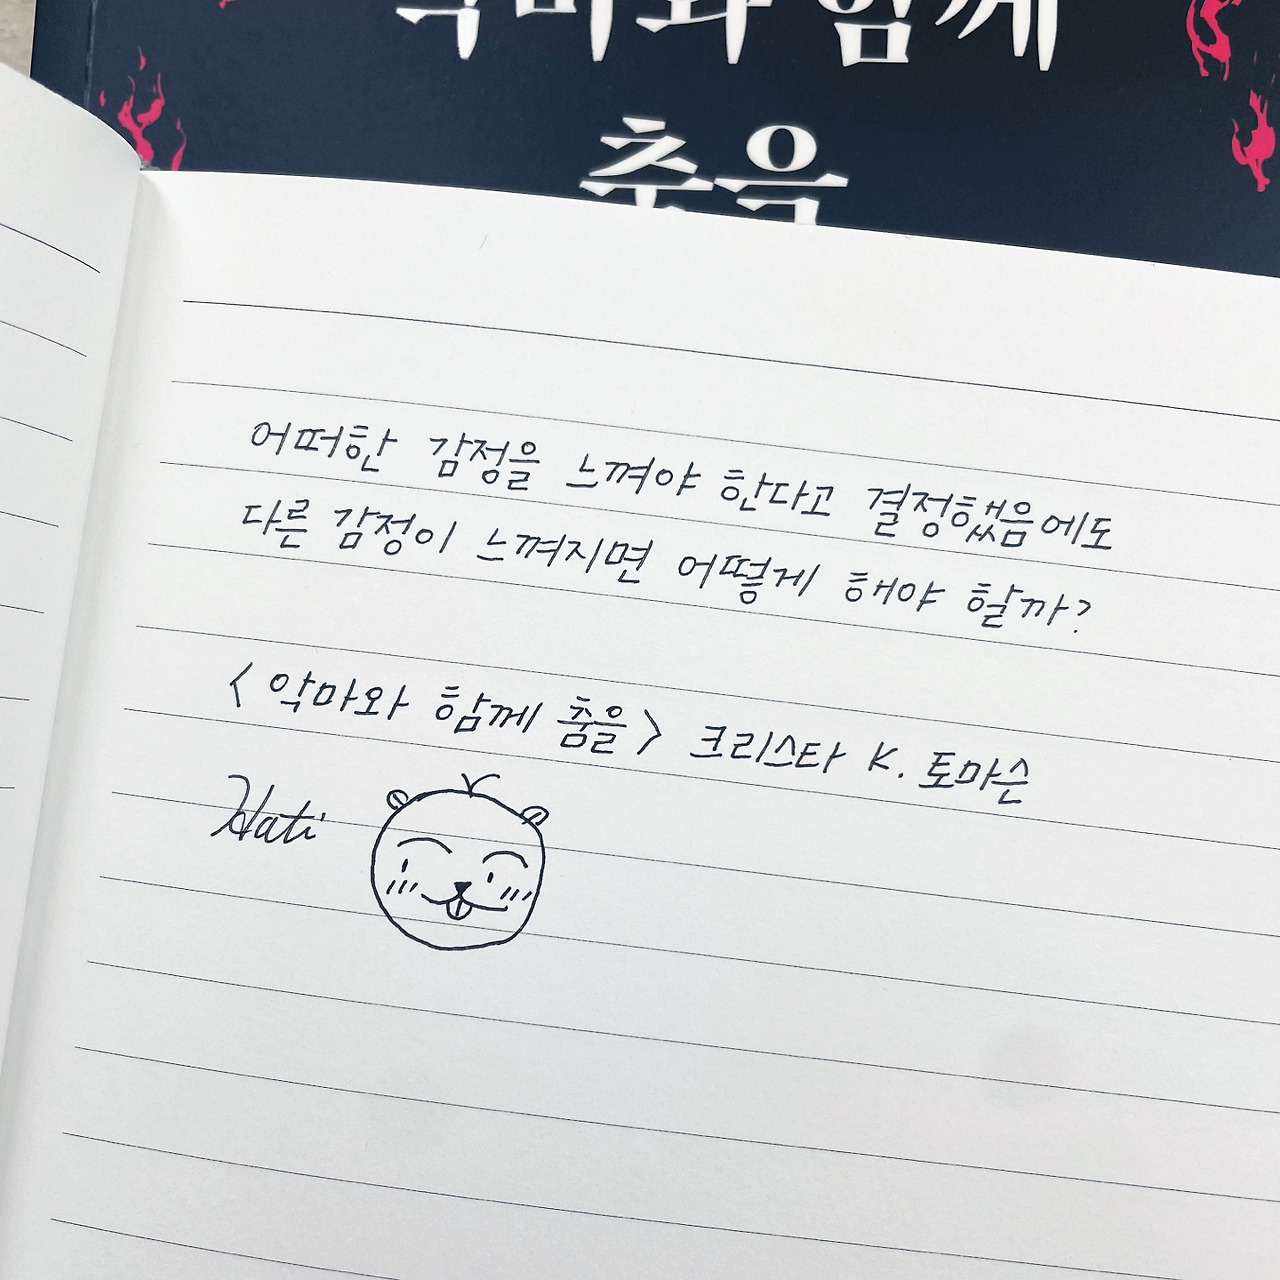 악마와 함께
춤을
어떠한 감정을 느껴야 한다고 결정했음에도
다른 감정이 느껴지면 어떻게 해야 할까?
<악마와 함께 춤을> 크리스타 K. 토마슨
Hati